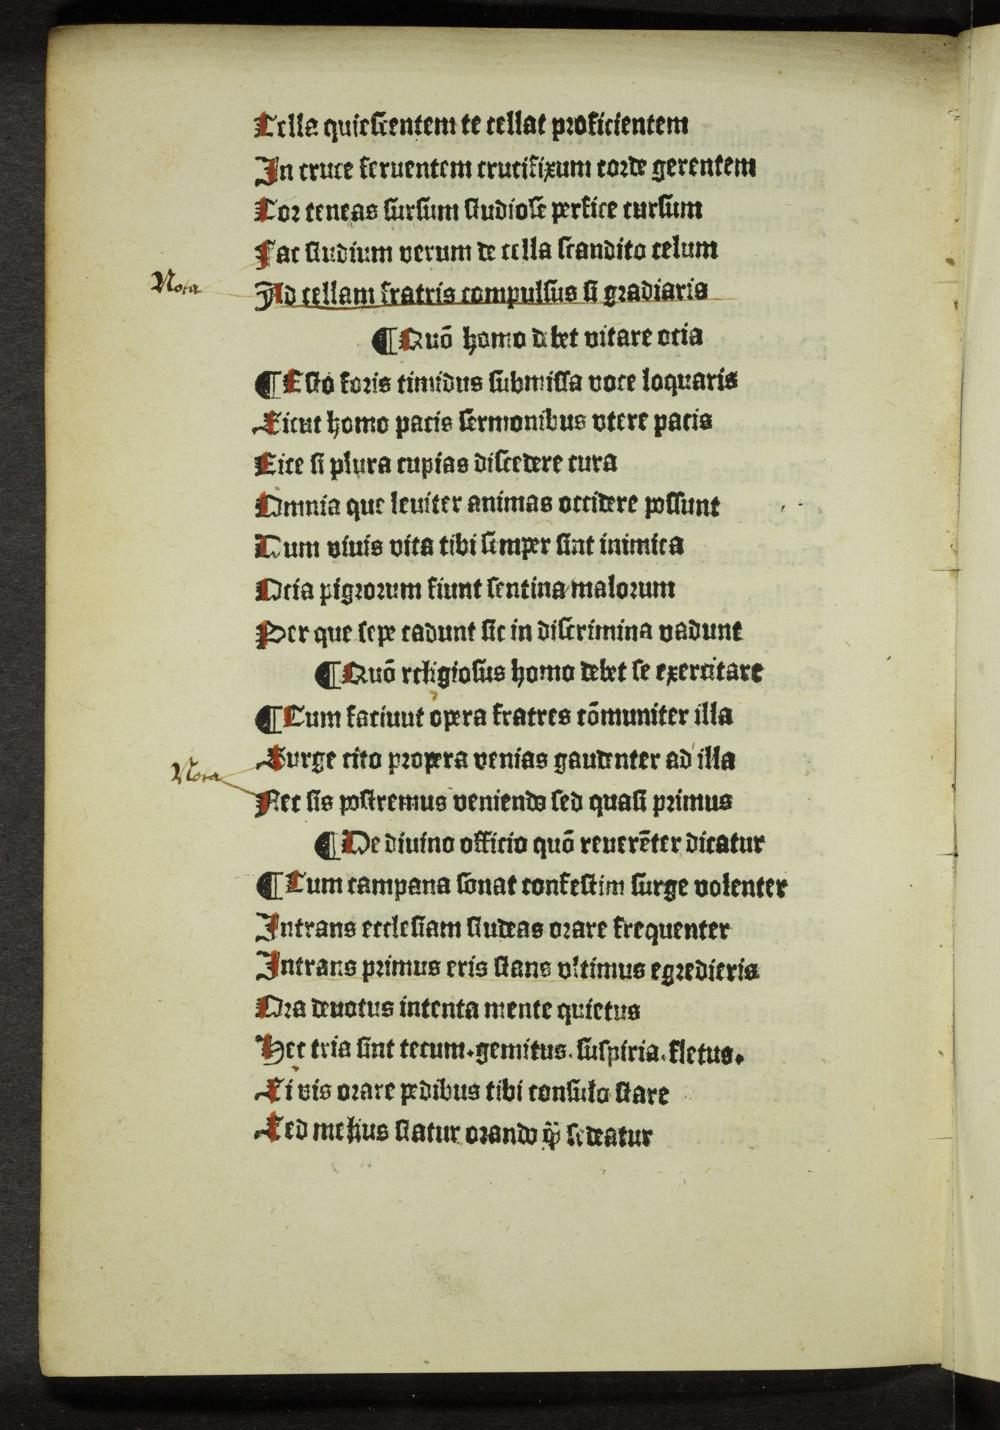 Cella quiescentem te cellat proficientem
In cruce feruentem crucifixum corde gerentem
Cor teneas sursum studiose perfice cursum
Fac studium verum de cella scandito celum
Nota
Ad cellam fratris compulsus si gradiaris
¶ Quō homo debet vitare ocia
¶ Esto foris timidus submissa voce loquaris
Sicut homo pacis sermonibus vtere pacis
Sice si plura cupias discedere cura
Omnia que leuiter animas occidere possunt
Dum viuis vita tibi semper sint inimica
Ocia pigrorum fiunt sentina malorum
Per que sepe cadunt sic in discrimina vadunt
¶ Quō religiosus homo debet se exercitare
¶ Cum faciuut opera fratres cōmuniter illa
Surge cito propera venias gaudenter ad illa
Nota
Nec sis postremus veniendo sed quasi primus
¶ De diuino officio quō reuerēter dicatur
¶ Cum campana sonat confestim surge volenter
Intrans ecclesiam studeas orare frequenter
Intrans primus eris stans vltimus egredieris
Ora deuotus intenta mente quietus
Hec tria sint tecum. gemitus. suspiria. fletus.
Si vis orare pedibus tibi consulo stare
Sed melius statur orando q̄ȝ sedeatur